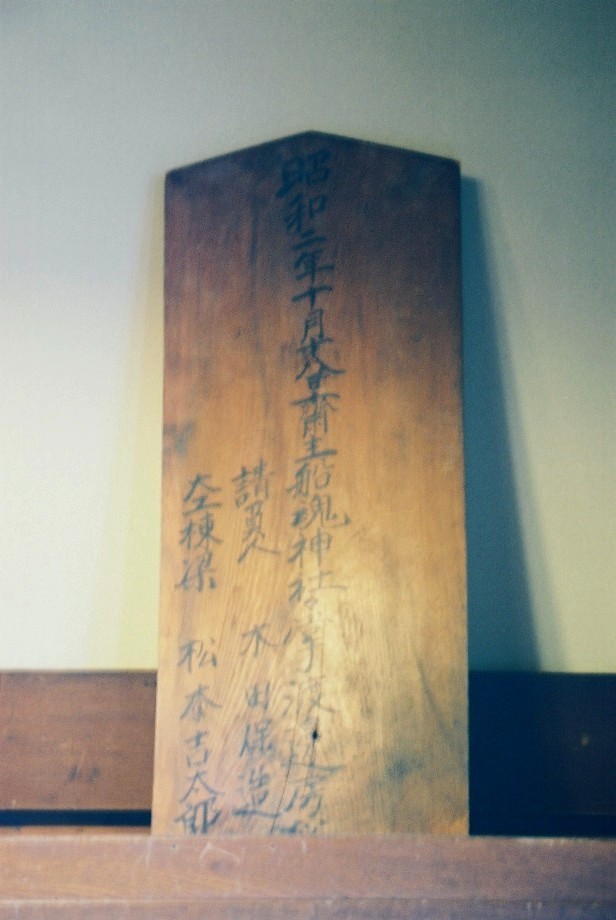 昭和二年十月廿八日 齋主船魂神社々守 渡辺房
請負人 木田保造
大工棟梁 松本吉太郎